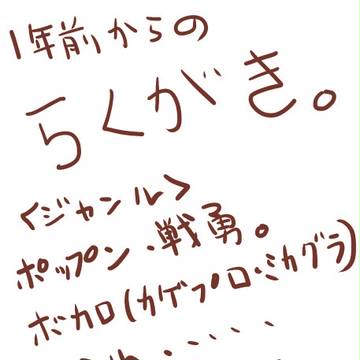 1年前からの
らくがき。
<ジャンル>
ポップン・戦勇。
ボカロ(カゲプロ・ミカグラ)